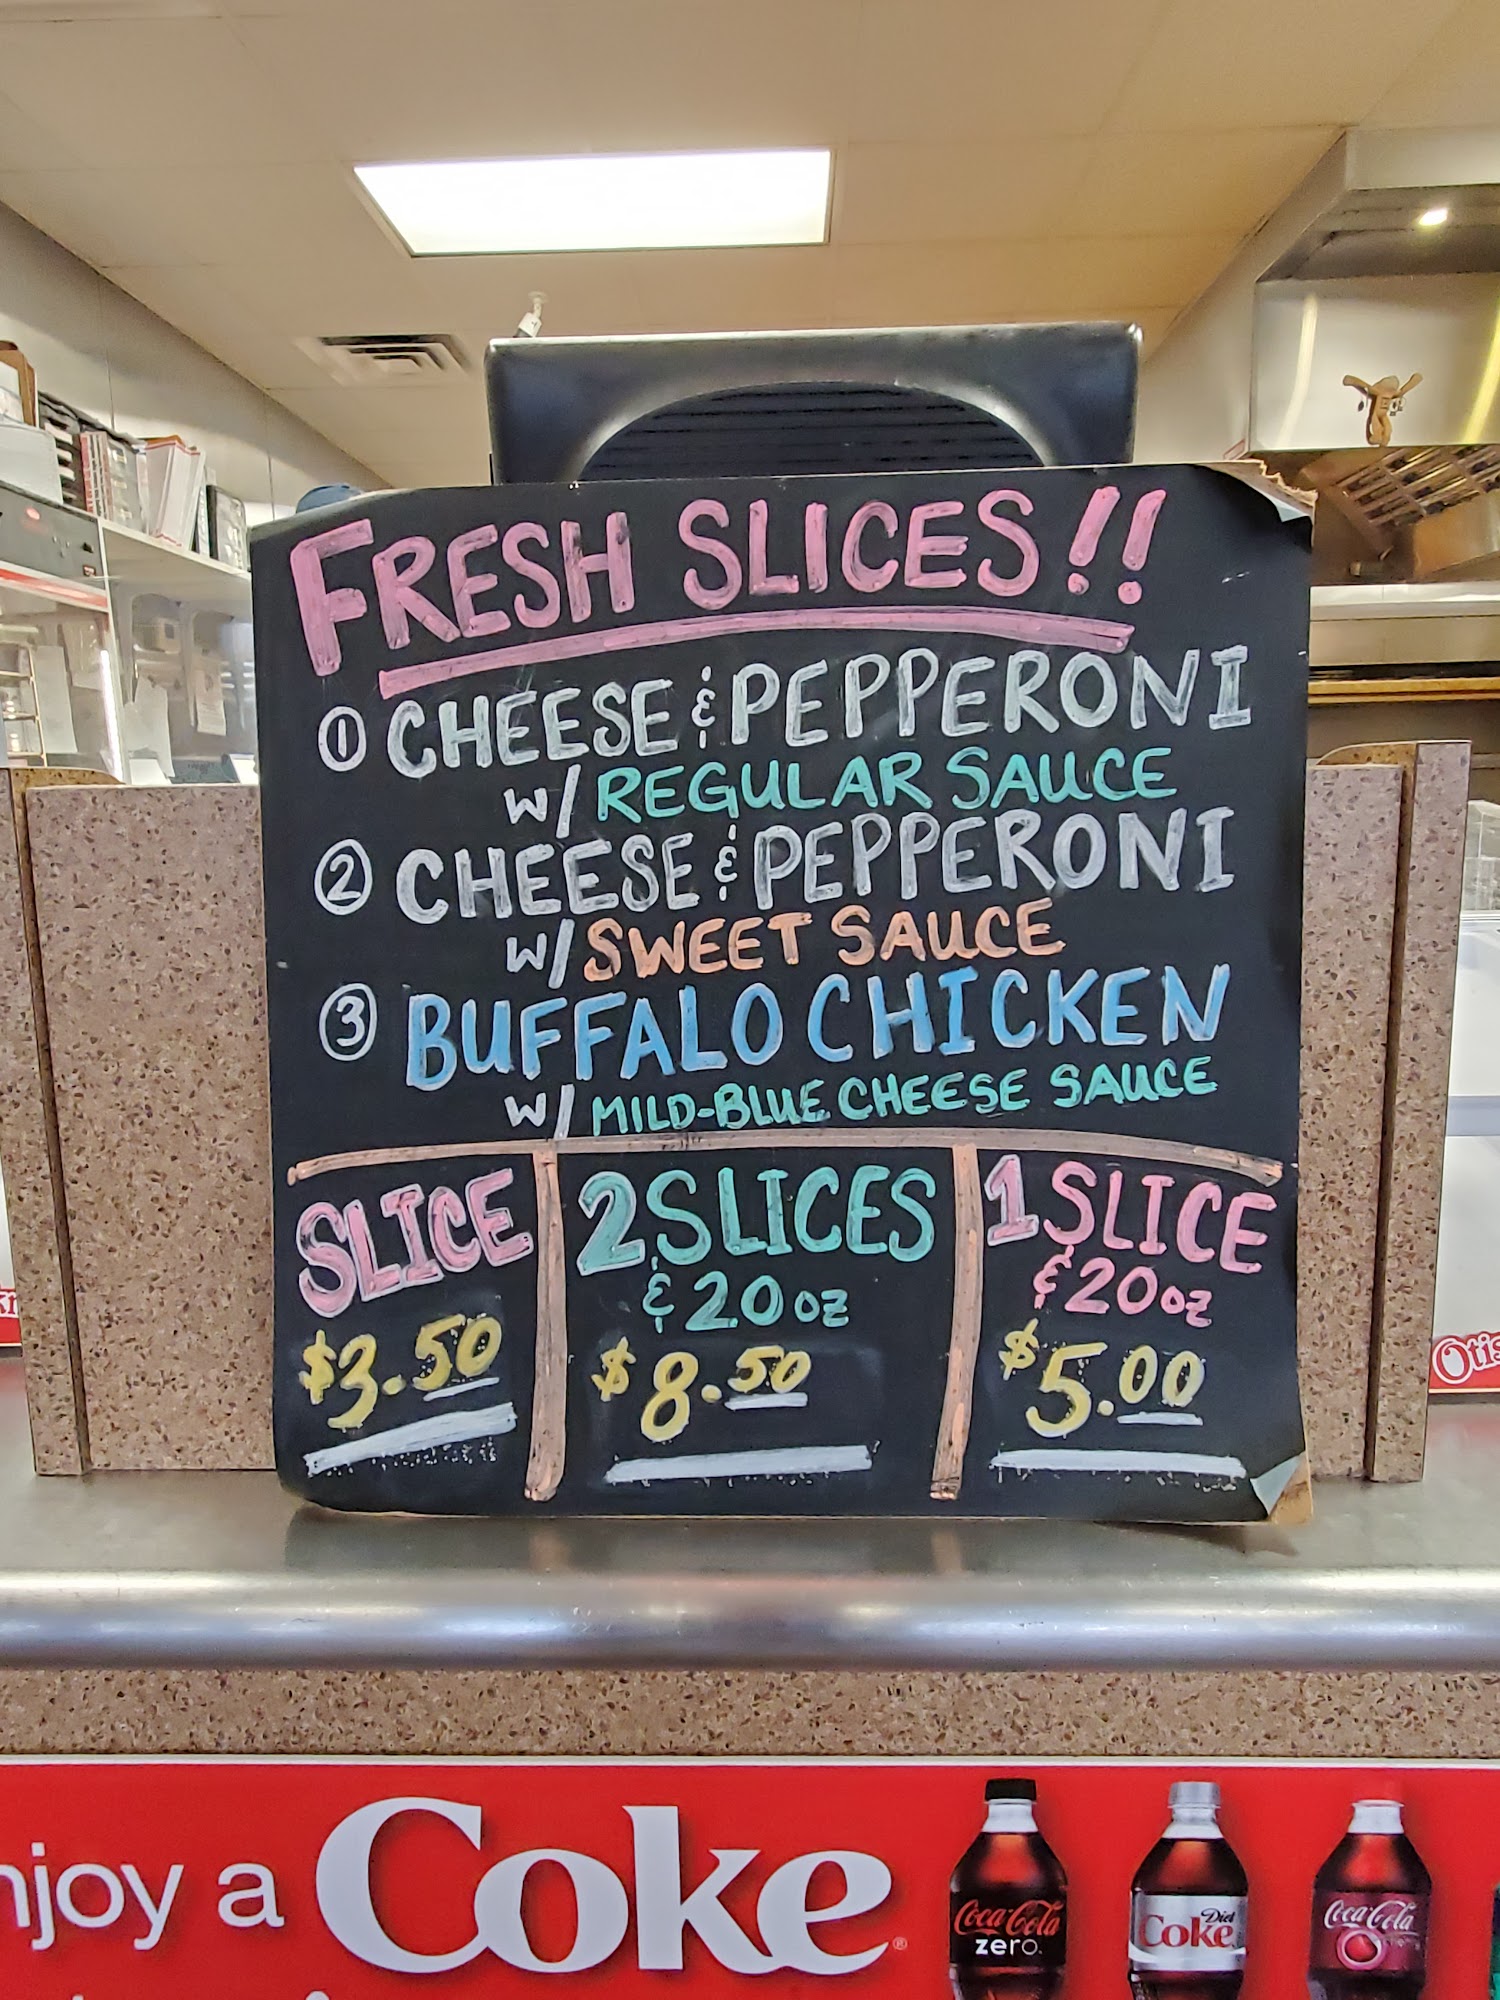 FRESH SLICES!!
① CHEESE & PEPPERONI
w/ REGULAR SAUCE
② CHEESE & PEPPERONI
w/ SWEET SAUCE
③ BUFFALO CHICKEN
w/ MILD-BLUE CHEESE SAUCE
SLICE
$3.50
2 SLICES
& 20 oz
$8.50
1 SLICE
& 20 oz
$5.00
Otis
njoy a Coke
Coca-Cola
zero
Diet
Coke
Coca-Cola